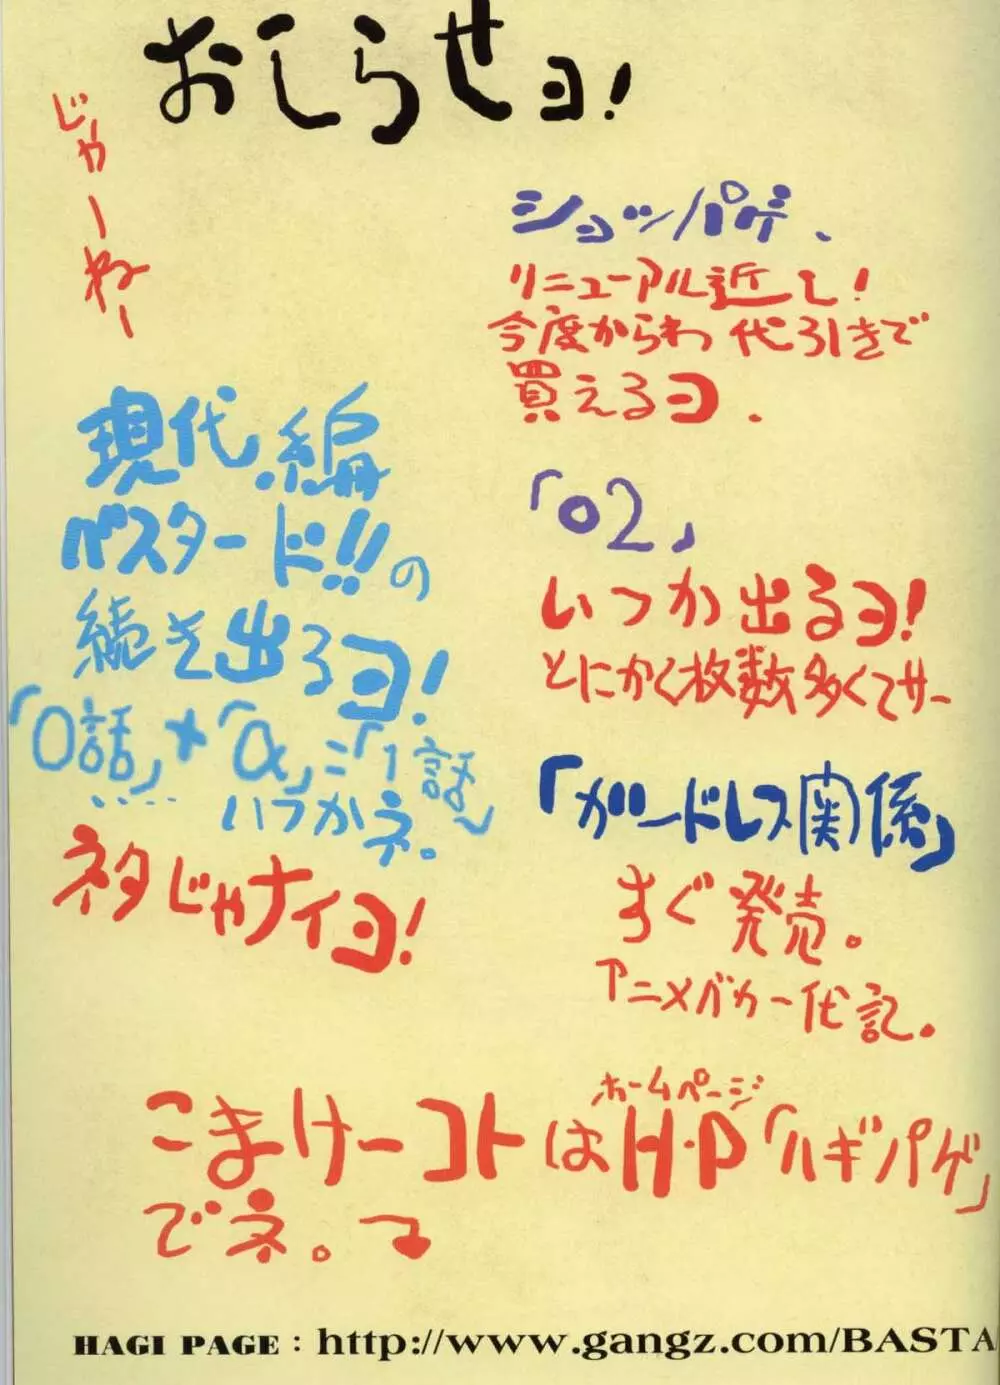 おしらせヨ!
ショッパゲ、
リニューアル近し!
今度からわ 代引きで
買えるヨ、
「02」
いつか出るヨ!
とにかく枚数多くてサー
「ガードレス関係」
すぐ発売。
アニメバカ一代記。
現代編
バスタード!!の
続き出るヨ!
「0話」+「α」=「1話〜
・・・・いつかネ。
ネタじゃナイヨ!
じゃーねー
ホームページ
こまけーコトはH.P「ハギパゲ」
でネ。
HAGI PAGE : http://www.gangz.com/BASTA